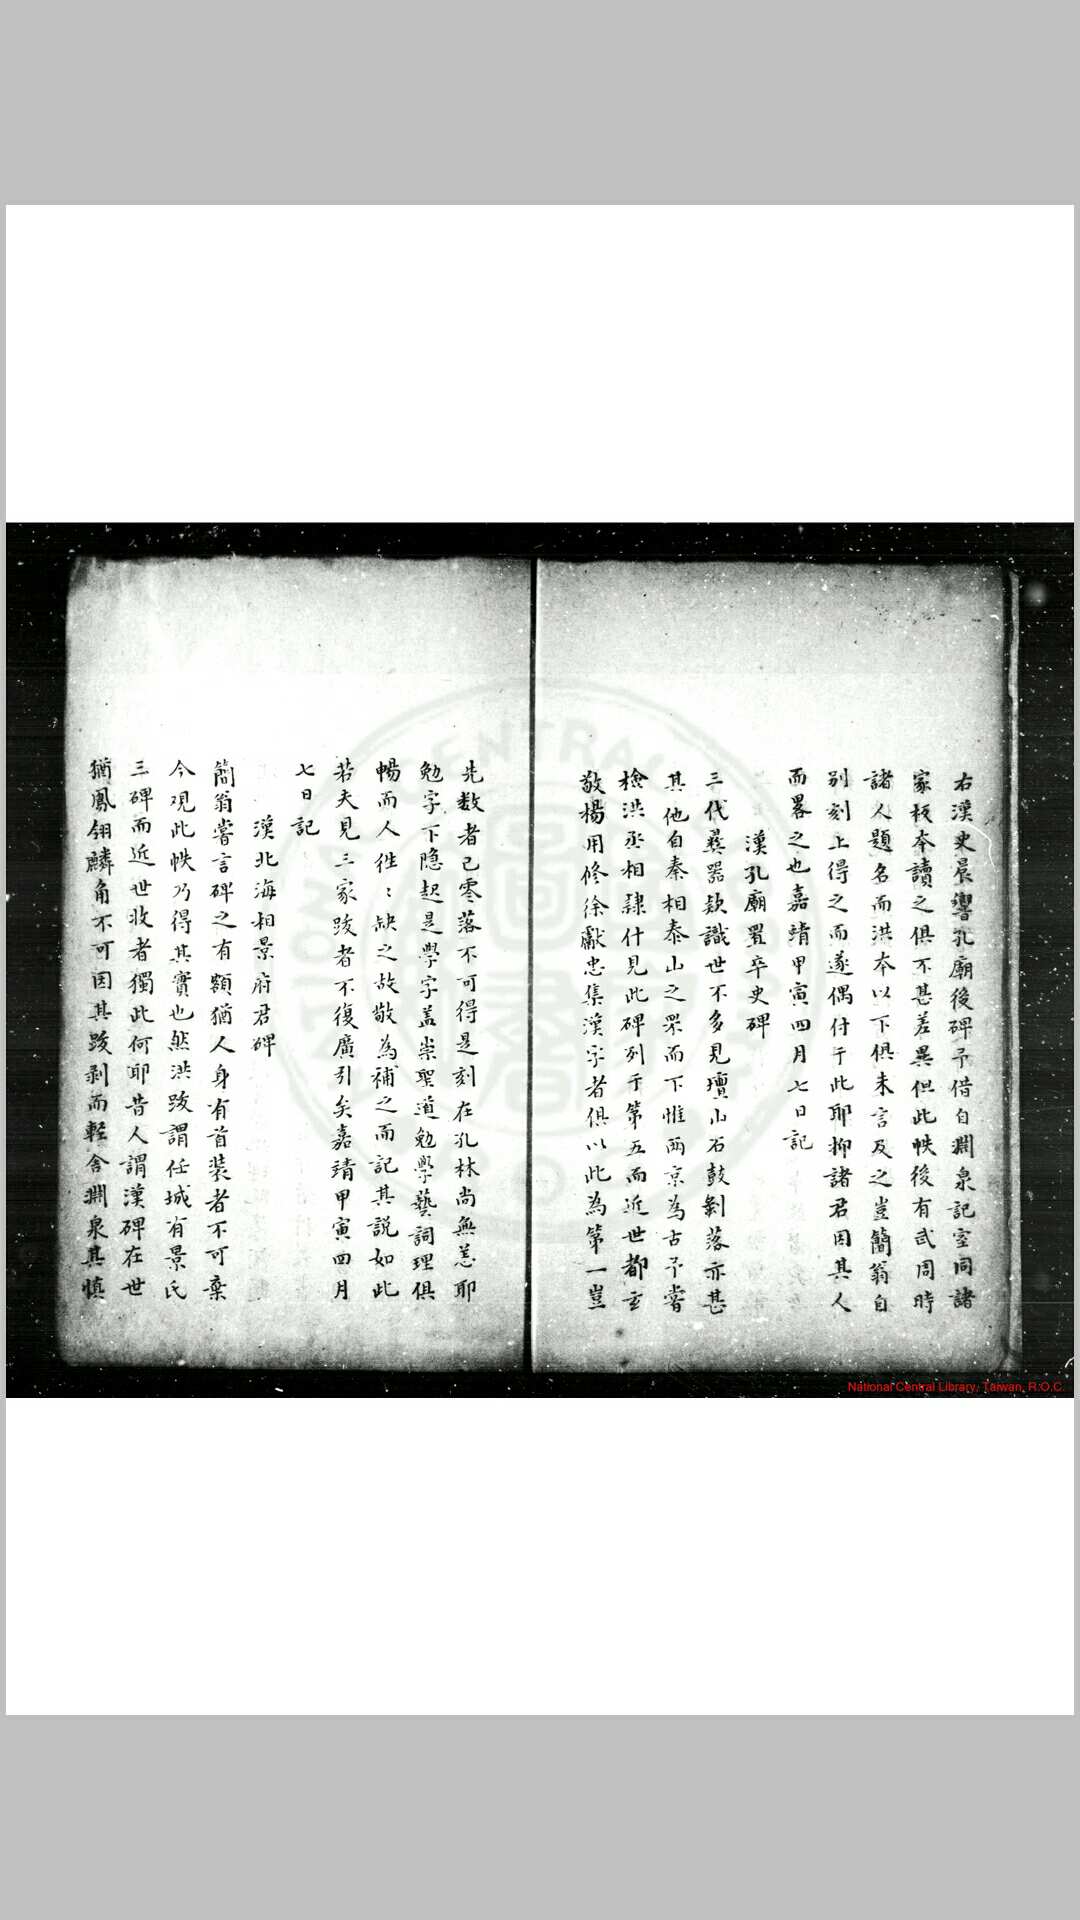 右漢史晨饗孔廟後碑予借自淵泉記室同諸
家板本讀之俱不甚差異但此帙後有武周時
諸人題名而洪本以下俱未言及之豈簡翁自
別刻上得之而遂偶付于此耶抑諸君因其人
而畧之也嘉靖甲寅四月七日記
漢孔廟置卒史碑
三代彝器欵識世不多見壇山石鼓剝落亦甚
其他自秦相泰山之罘而下惟两京為古予嘗
檢洪丞相隷什見此碑列于第五而近世都玄
敬楊用修徐獻忠集漢字者俱以此為第一豈
先数者已零落不可得是刻在孔林尚無恙耶
勉字下隐起是學字盖崇聖道勉學藝詞理俱
暢而人徃〻缺之故敬為補之而記其說如此
若夫見三家跋者不復廣引矣嘉靖甲寅四月
七日記
漢北海相景府君碑
簡翁嘗言碑之有額猶人身有首装者不可棄
今观此帙乃得其實也然洪跋謂任城有景氏
三碑而近世收者獨此何耶昔人謂漢碑在世
猶鳳翎麟角不可因其跋剥而輕舍淵泉其慎
National Central Library, Taiwan, R.O.C.